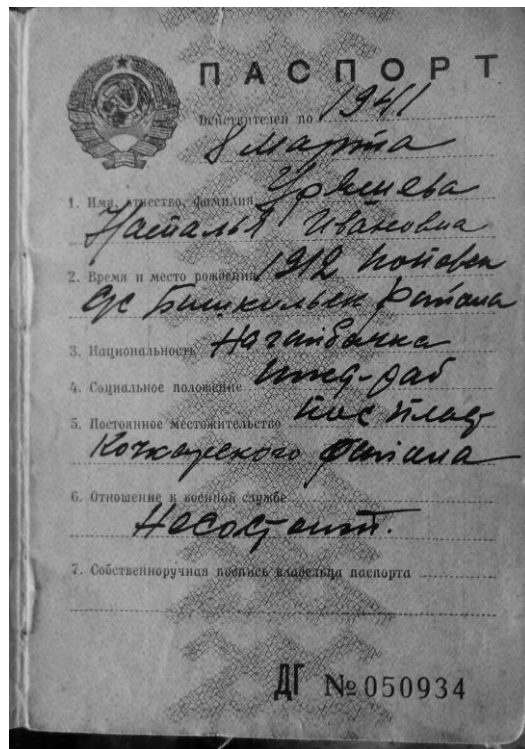 ПАСПОРТ
Действителен по 1941
8 марта
1. Имя, отчество, фамилия Уряшева
Наталья Ивановна
2. Время и место рождения 1912
района
3. Национальность Нагайбачка
4. Социальное положение
5. Постоянное местожительство пос Пласт
Кочкарского района
6. Отношение к военной службе
Не состоит.
7. Собственноручная подпись владельца паспорта
ДГ № 050934